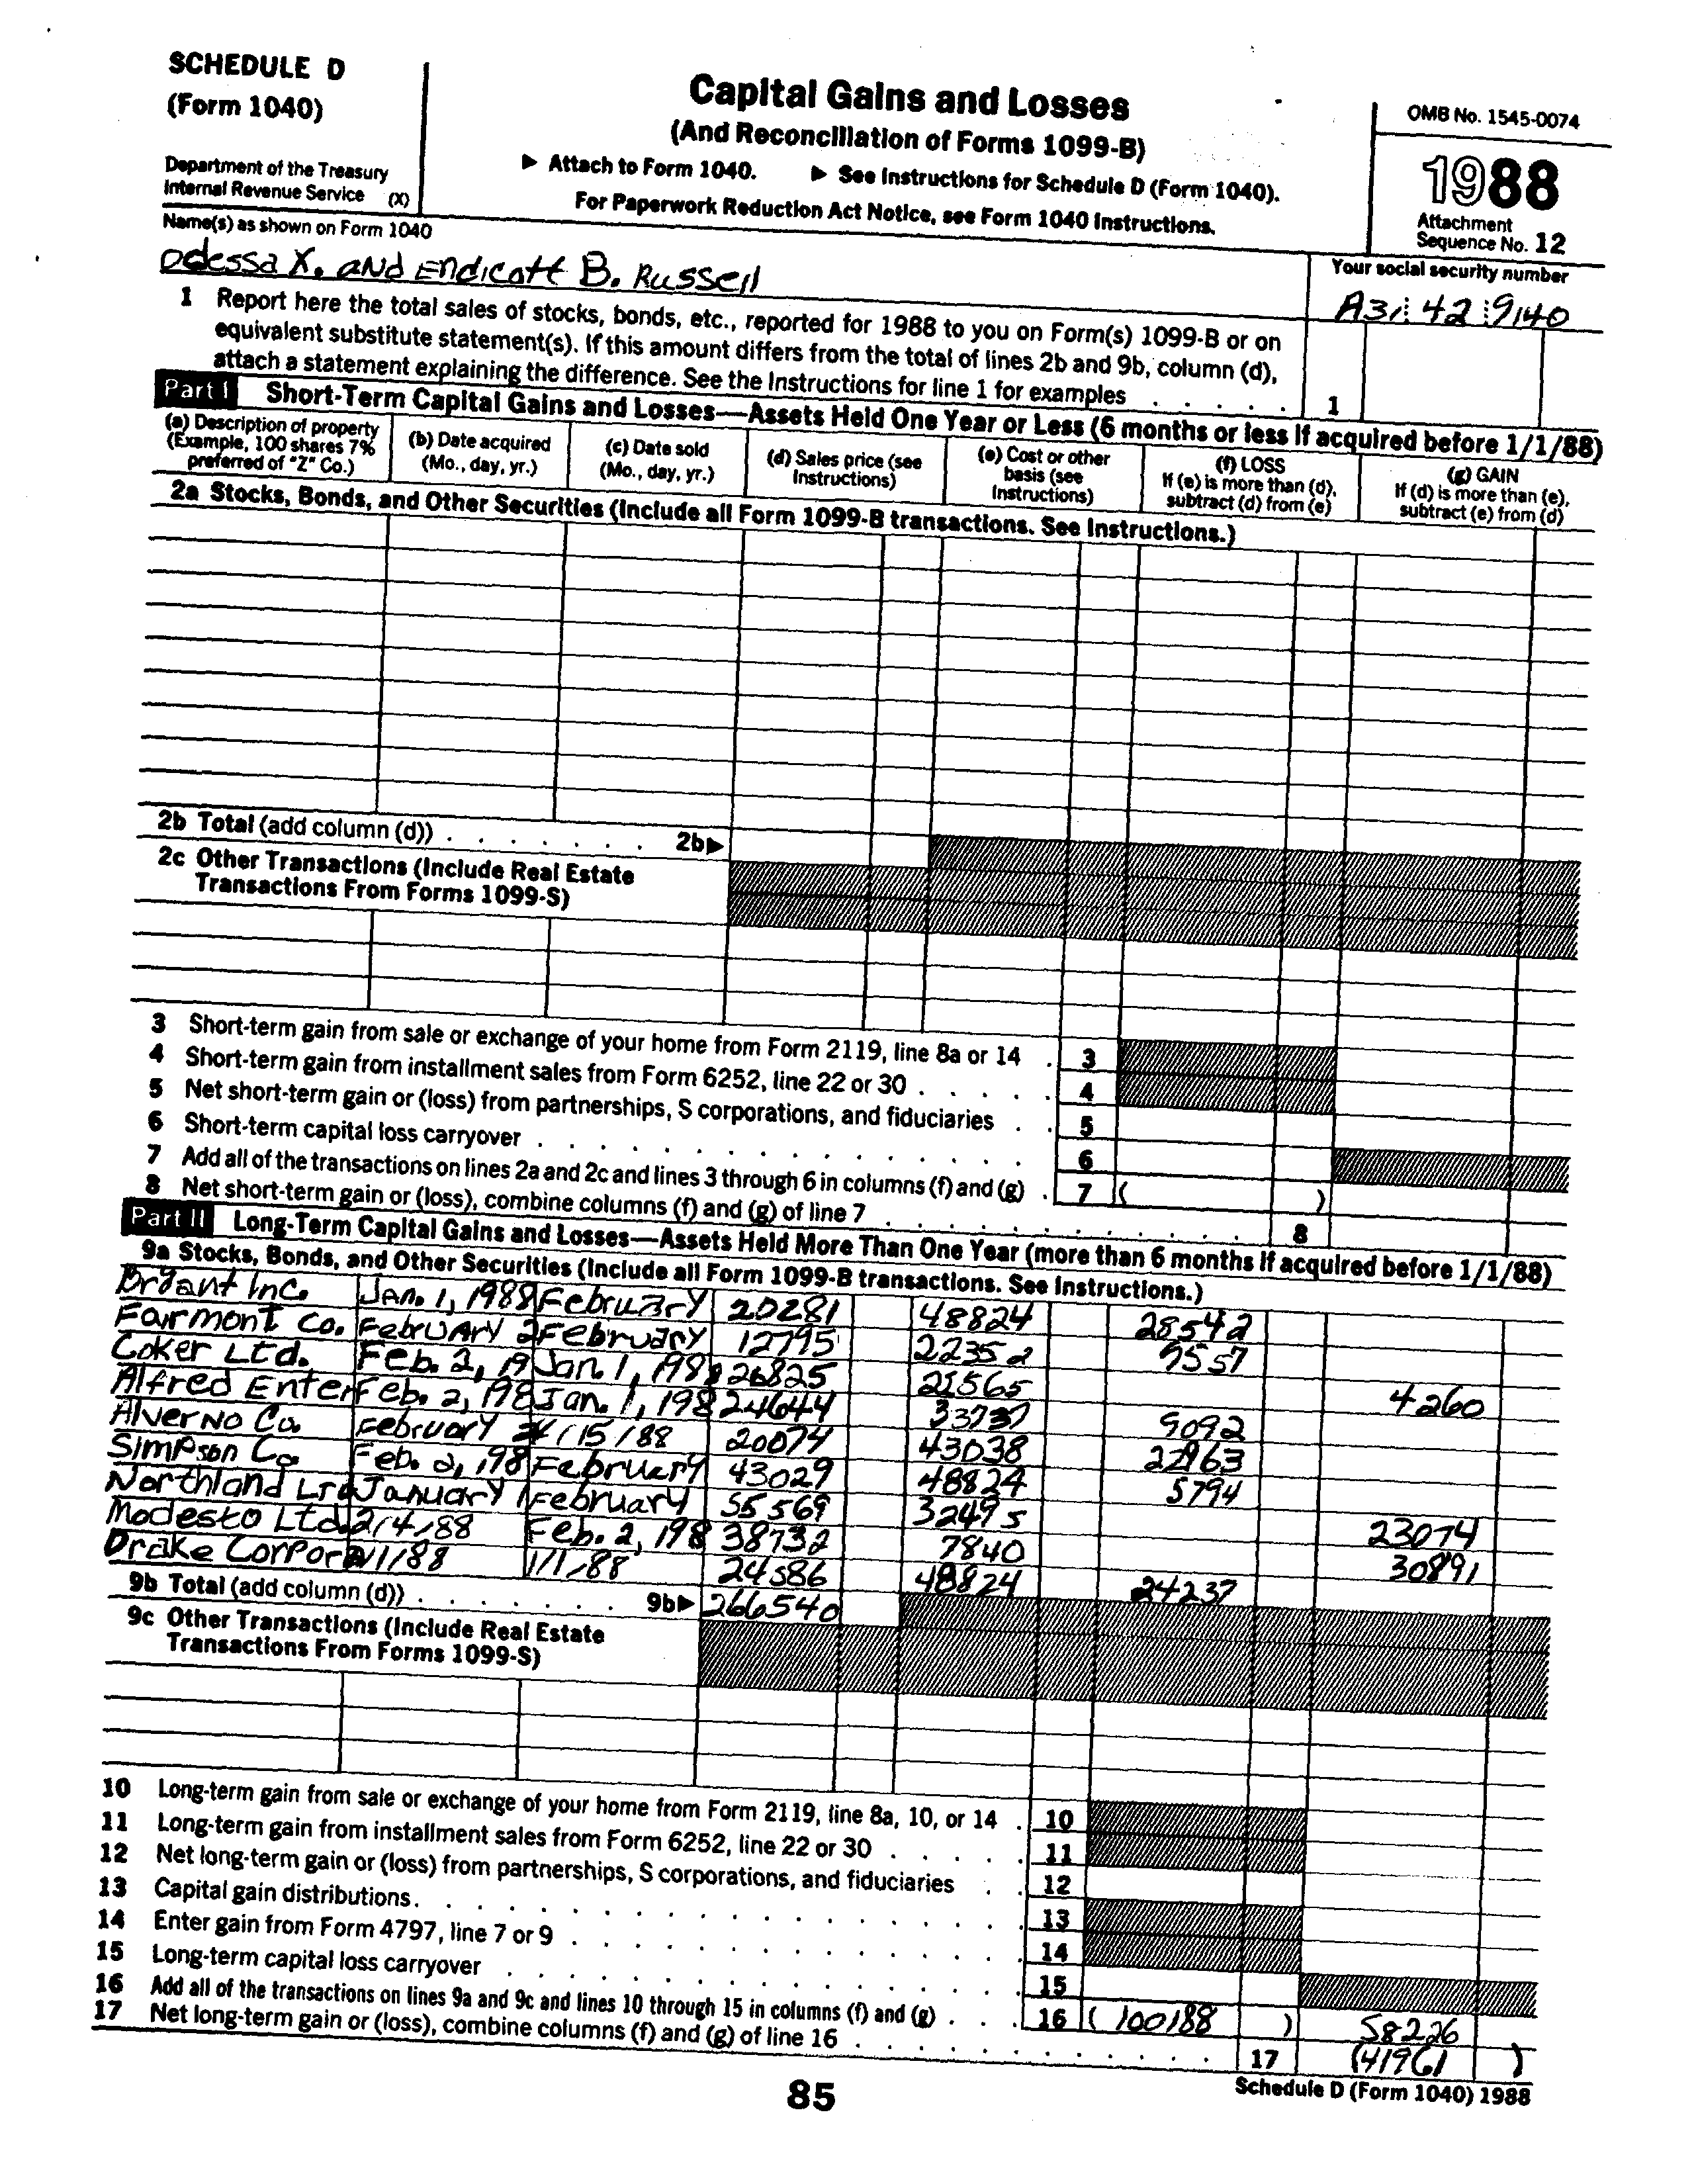 SCHEDULE D
(Form 1040)
Department of the Treasury
Internal Revenue Service (X)
Capital Gains and Losses
(And Reconciliation of Forms 1099-B)
▶ Attach to Form 1040. ▶ See Instructions for Schedule D (Form 1040).
For Paperwork Reduction Act Notice, see Form 1040 Instructions.
OMB No. 1545-0074
1988
Attachment
Sequence No. 12
Name(s) as shown on Form 1040
Odessa X. and Endicott B. Russell
Your social security number
A31 42 9140
1 Report here the total sales of stocks, bonds, etc., reported for 1988 to you on Form(s) 1099-B or on
equivalent substitute statement(s). If this amount differs from the total of lines 2b and 9b, column (d),
attach a statement explaining the difference. See the Instructions for line 1 for examples . . . . . 1
Part I Short-Term Capital Gains and Losses—Assets Held One Year or Less (6 months or less if acquired before 1/1/88)
(a) Description of property (Example, 100 shares 7% preferred of "Z" Co.)
(b) Date acquired (Mo., day, yr.)
(c) Date sold (Mo., day, yr.)
(d) Sales price (see Instructions)
(e) Cost or other basis (see Instructions)
(f) LOSS If (e) is more than (d), subtract (d) from (e)
(g) GAIN If (d) is more than (e), subtract (e) from (d)
2a Stocks, Bonds, and Other Securities (Include all Form 1099-B transactions. See Instructions.)
2b Total (add column (d)) . . . . . . . 2b▶
2c Other Transactions (Include Real Estate
Transactions From Forms 1099-S)
3 Short-term gain from sale or exchange of your home from Form 2119, line 8a or 14 . 3
4 Short-term gain from installment sales from Form 6252, line 22 or 30 . . . . . 4
5 Net short-term gain or (loss) from partnerships, S corporations, and fiduciaries . . 5
6 Short-term capital loss carryover . . . . . . . . . . . . . . 6
7 Add all of the transactions on lines 2a and 2c and lines 3 through 6 in columns (f) and (g) . 7 ( )
8 Net short-term gain or (loss), combine columns (f) and (g) of line 7 . . . . . . . . . . . 8
Part II Long-Term Capital Gains and Losses—Assets Held More Than One Year (more than 6 months if acquired before 1/1/88)
9a Stocks, Bonds, and Other Securities (Include all Form 1099-B transactions. See Instructions.)
Bryant Inc. Jan. 1, 1988 February 20281 48824 28542
Fairmont Co. February 2 February 12795 22352 9557
Coker Ltd. Feb. 2, 19 Jan. 1, 198 26825 22565 4260
Alfred Enter Feb. 2, 198 Jan. 1, 198 24644 33737 9092
Alverno Co. February 2/15/88 20074 43038 22963
Simpson Co. Feb. 2, 198 February 43029 48824 5794
Northland Ltd January 1 February 55569 32495 23074
Modesto Ltd. 2/4/88 Feb. 2, 198 38732 7840 30891
Drake Corpora 2/1/88 1/1/88 24586 48824 24237
9b Total (add column (d)) . . . . . . . 9b▶ 266540
9c Other Transactions (Include Real Estate
Transactions From Forms 1099-S)
10 Long-term gain from sale or exchange of your home from Form 2119, line 8a, 10, or 14 . 10
11 Long-term gain from installment sales from Form 6252, line 22 or 30 . . . . . 11
12 Net long-term gain or (loss) from partnerships, S corporations, and fiduciaries . . 12
13 Capital gain distributions. . . . . . . . . . . . . . . . . . 13
14 Enter gain from Form 4797, line 7 or 9 . . . . . . . . . . . . . 14
15 Long-term capital loss carryover . . . . . . . . . . . . . . . 15
16 Add all of the transactions on lines 9a and 9c and lines 10 through 15 in columns (f) and (g) . . . 16 ( 100188 ) 58226
17 Net long-term gain or (loss), combine columns (f) and (g) of line 16 . . . . . . . . . . . . 17 (41961 )
85
Schedule D (Form 1040) 1988